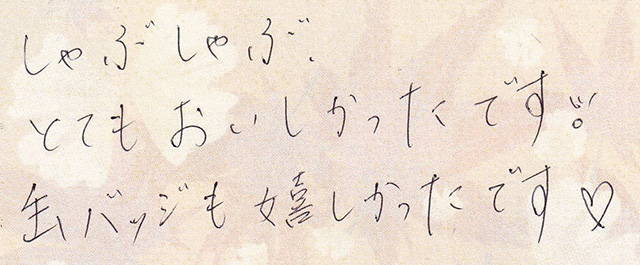 しゃぶしゃぶ、
とてもおいしかったです!!
缶バッジも嬉しかったです♡